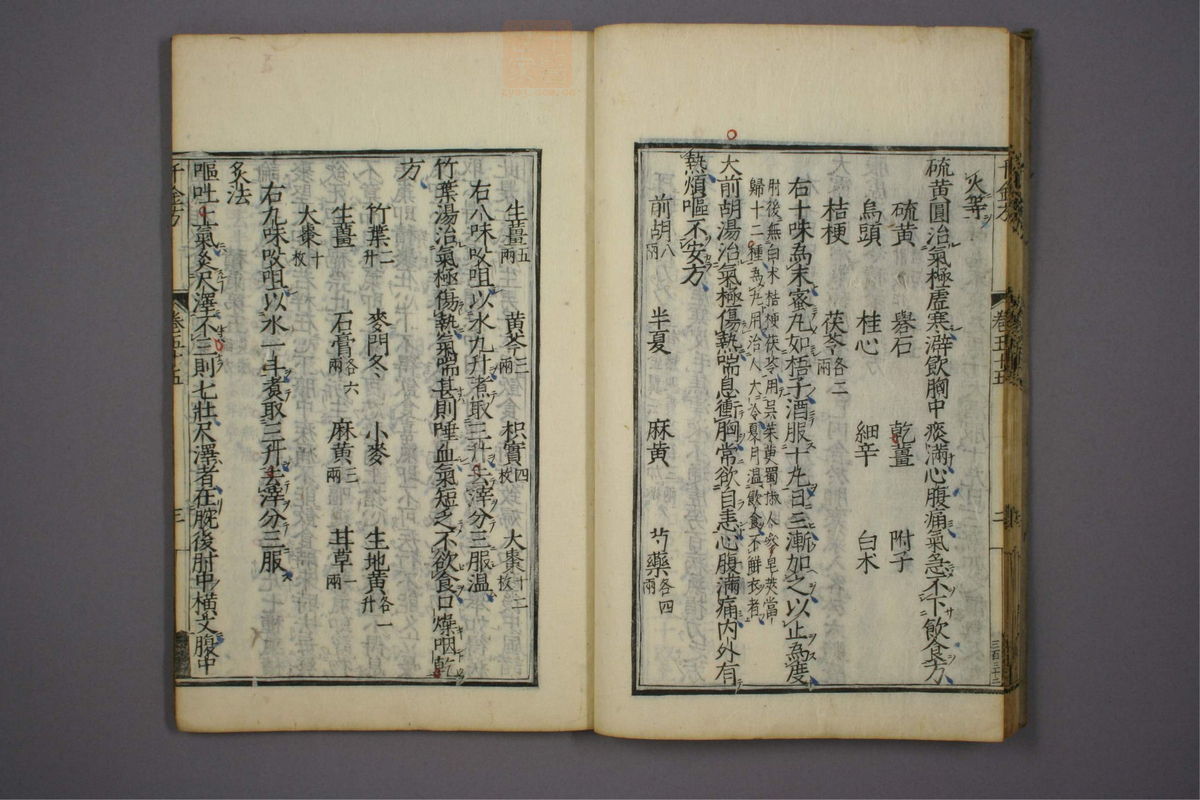 火等
硫黄圓治氣極虛寒澼飲胸中痰滿心腹痛氣急不下飲食方
硫黄 礜石 乾薑 附子
烏頭 桂心 細辛 白术
桔梗 茯苓各二兩
右十味為末蜜丸如梧子酒服十丸日三漸加之以止為度
肘後無白术桔梗茯苓用吳茱萸蜀椒人參皂莢當
歸十二種為丸用治人大冷夏月温飲食不解衣者
大前胡湯治氣極傷熱喘息衝胸常欲自恚心腹滿痛内外有
熱煩嘔不安方
前胡八兩 半夏 麻黄 芍藥各四兩
千金方 卷五十五 二
三百三十二
生薑五兩 黄芩三兩 枳實四枚 大棗十二枚
右八味㕮咀以水九升煮取三升去滓分三服温
竹葉湯治氣極傷熱氣喘甚則唾血氣短乏不欲食口燥咽乾
方
竹葉二升 麥門冬 小麥 生地黄各一升
生薑 石膏各六兩 麻黄三兩 甘草一兩
大棗十枚
右九味㕮咀以水一斗煮取三升去滓分三服
炙法
嘔吐上氣灸尺澤不三則七壯尺澤者在腕後肘中橫文腹中
千金方 卷五十五 三